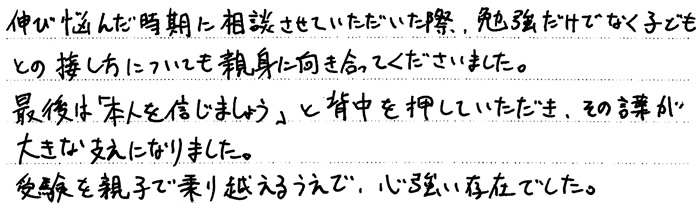 伸び悩んだ時期に相談させていただいた際、勉強だけでなく子ども
との接し方についても親身に向き合ってくださいました。
最後は「本人を信じましょう」と背中を押していただき、その言葉が
大きな支えになりました。
受験を親子で乗り越えるうえで、心強い存在でした。